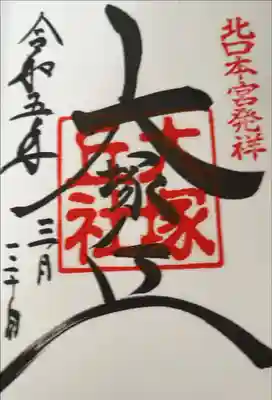 北口本宮発祥
大塚丘
大塚
丘社
令和五年
三月